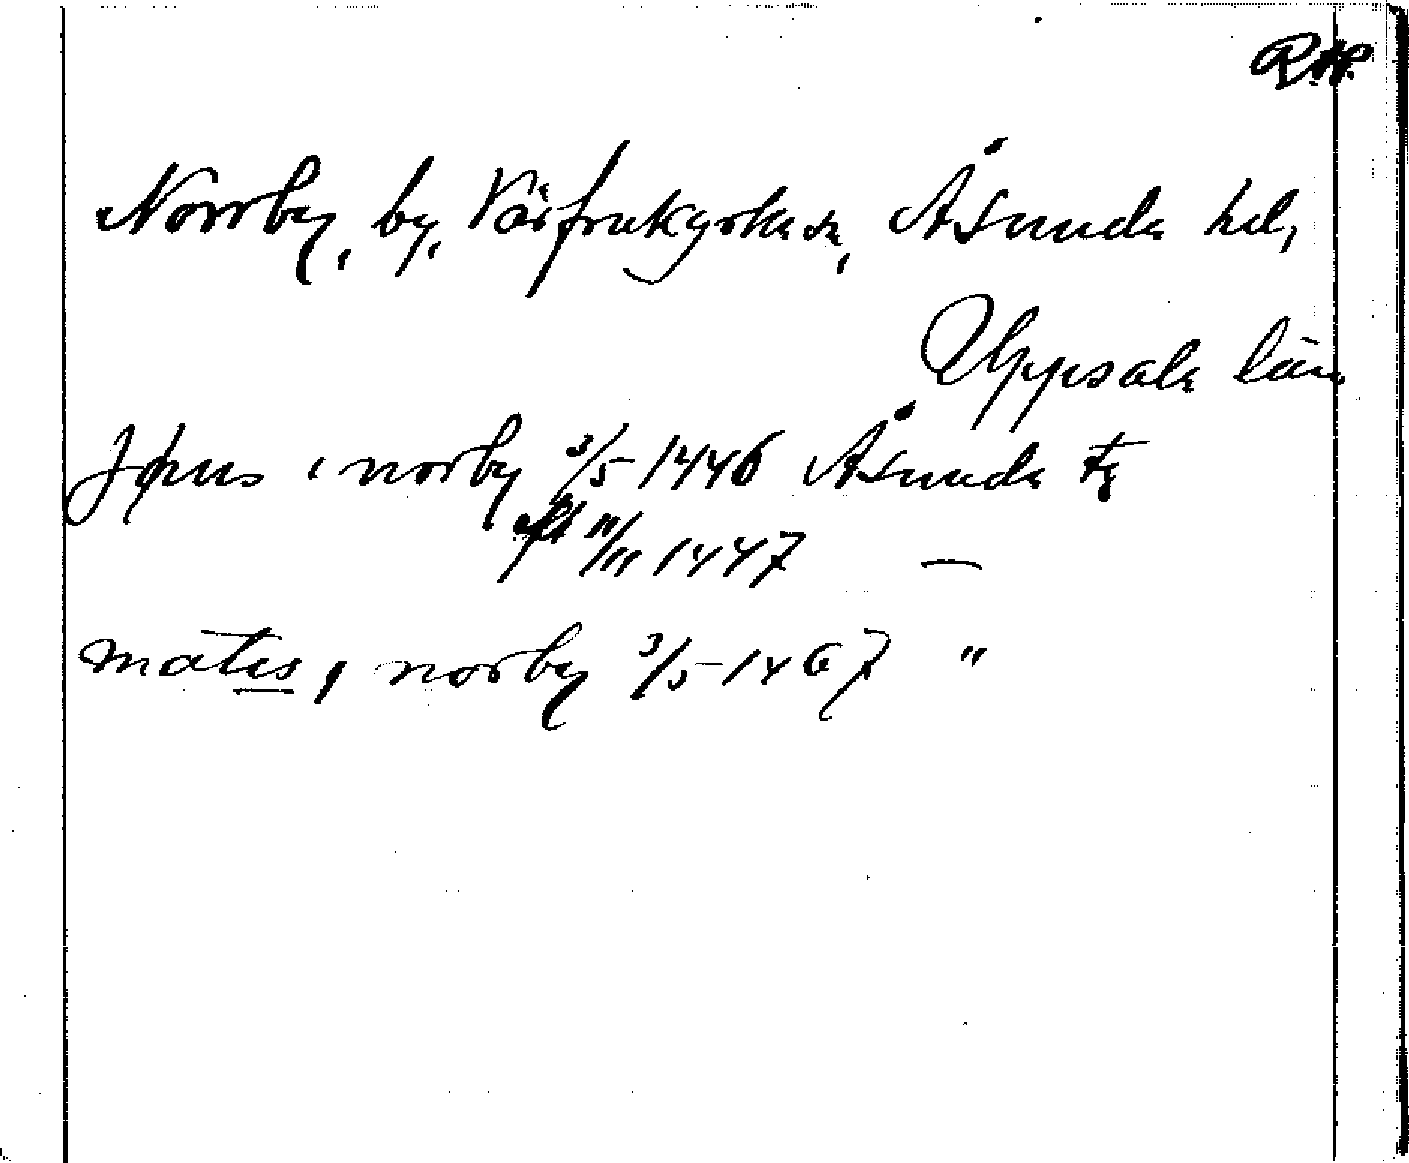 Norrby, by, Vårfrukyrka sn, Åsunda hd,
Uppsala län
i norby 3/5 1446 Åsunda
11/11 1447 —
matis i norby 3/5 1467 "